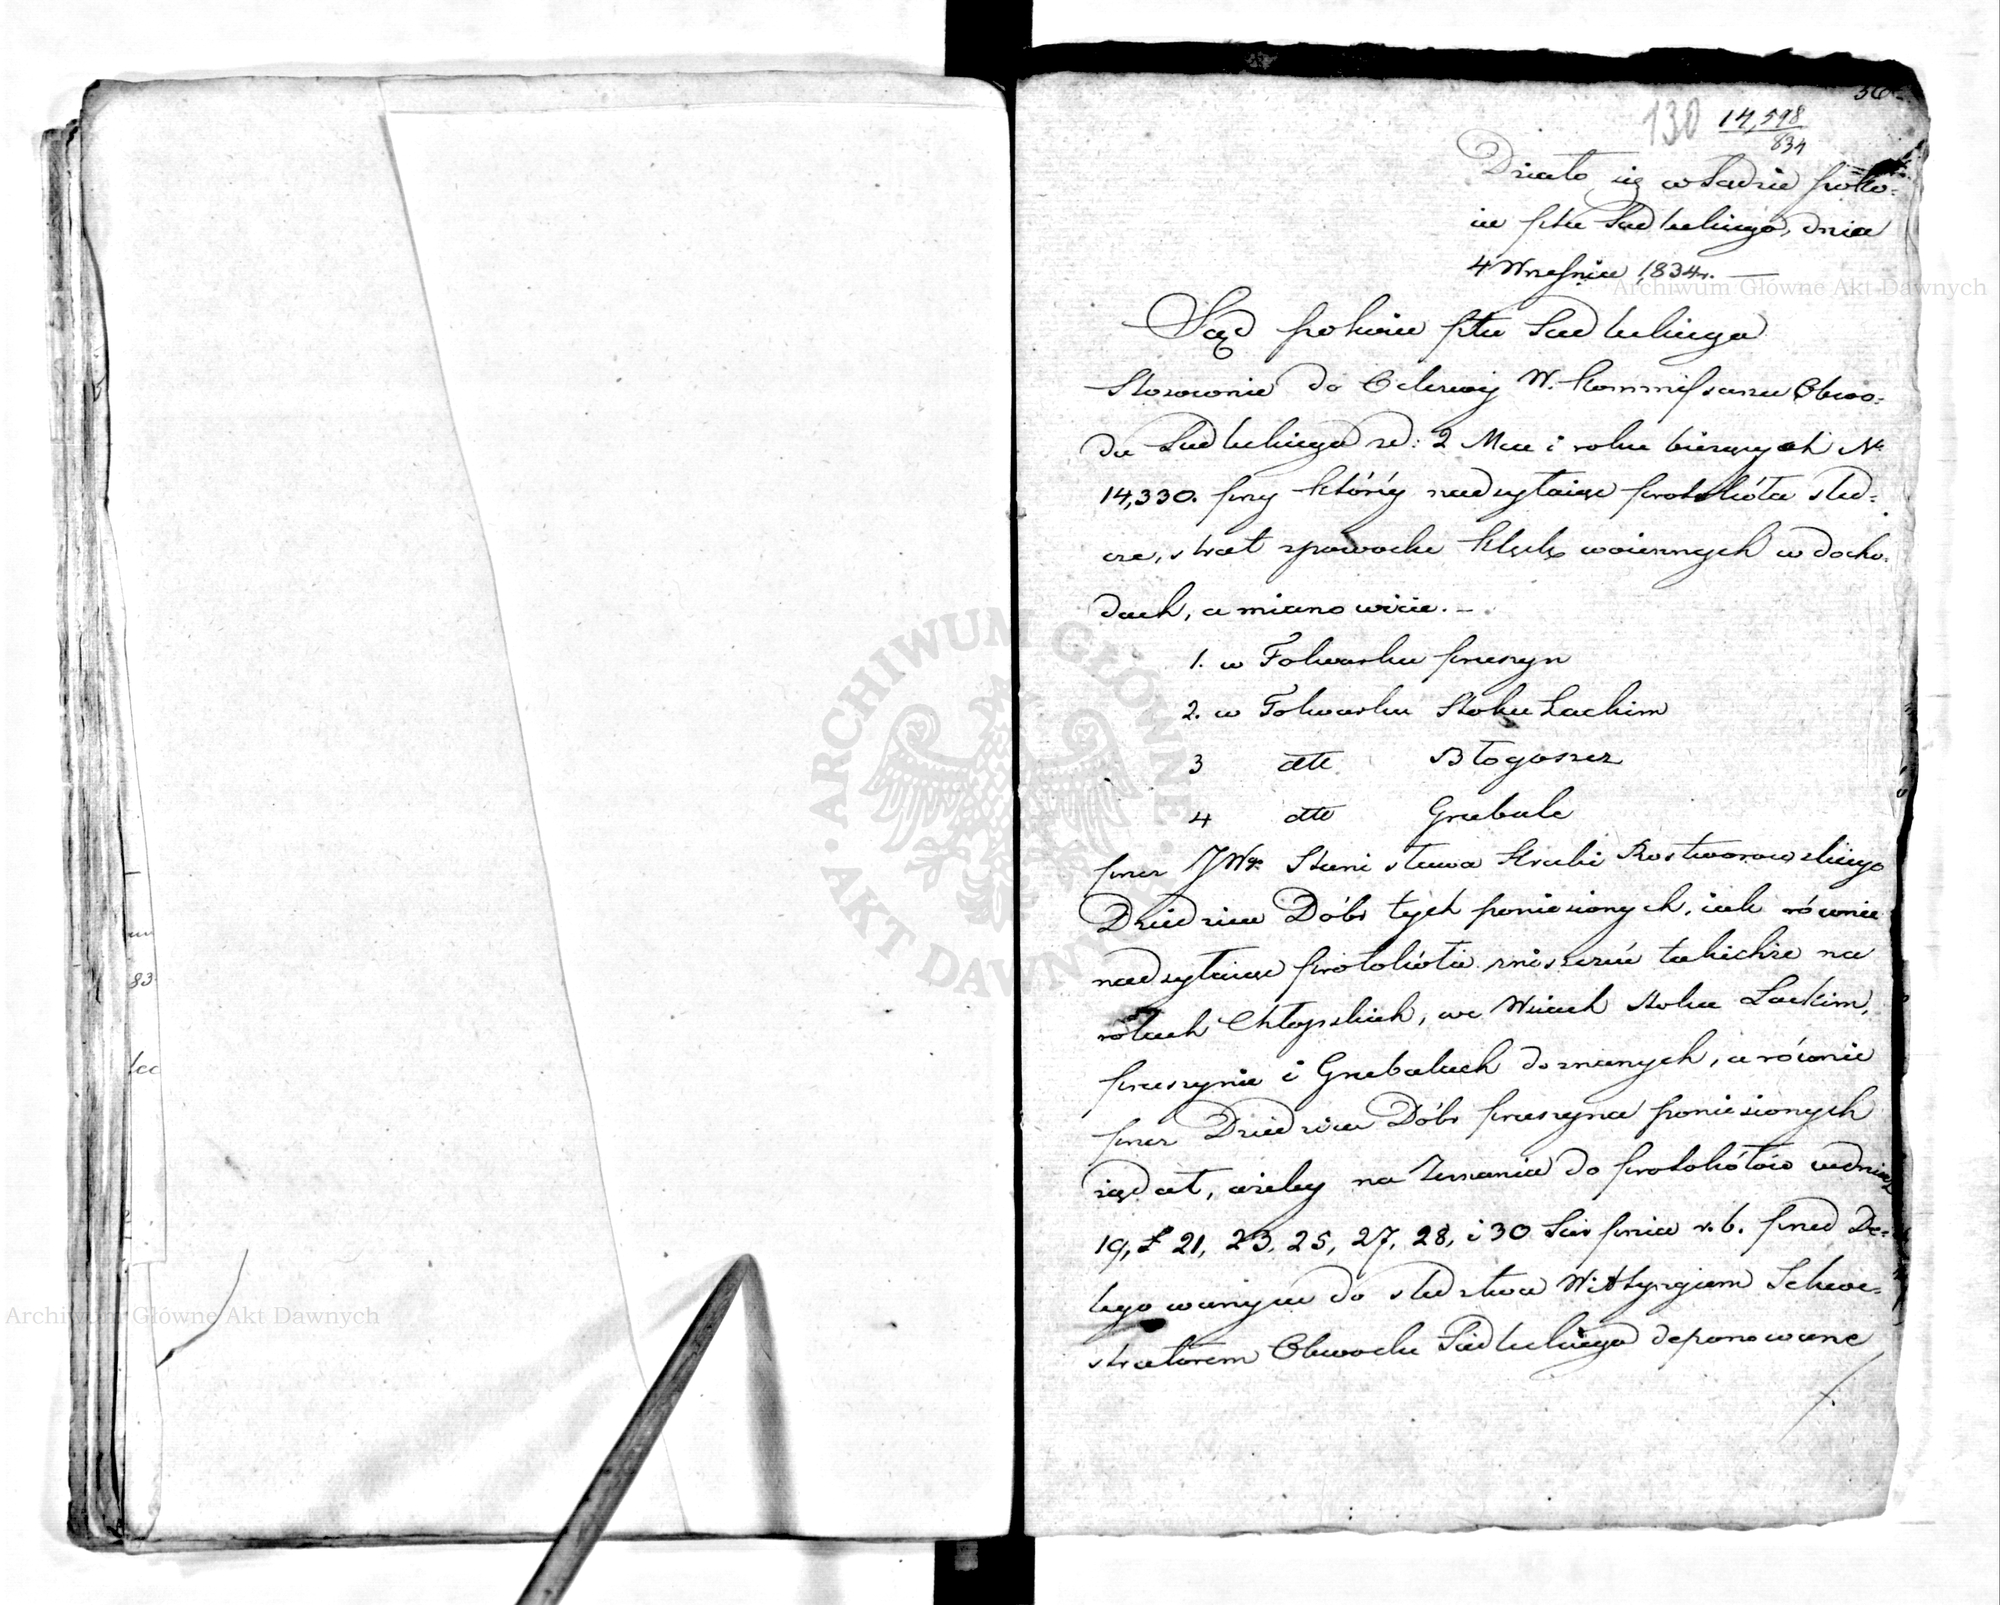 56
130 14,598
834
Działo się w Sądzie poko-
iu pttu Siedleckiego, dnia
4 Wrześniu 1834r. —
Sąd pokoiu pttu Siedleckiego
Stosownie do Odezwy W. Kommissarza Obwo-
du Siedleckiego zd: 2 Mca i roku bieżących Nr
14,330. przy któréy nadsyłaiąc protokóła śled-
cze, strat zpowodu klęsk woiennych w docho-
dach, a mianowicie. —
1. w Folwarku Pruszyn
2. w Folwarku Stoku Lackim
3 dtto Błogoszcz
4 dtto Grubale
przez JWgo Stanisława Hrabi Rostworowskiego
Dziedzica Dóbr tych poniesionych, iak równie
nadsyłaiąc protokóła zniszczeń takichże na
rolach Chłopskich, we Wsiach Stoku Lackim,
Pruszynie i Grubalach doznanych, a równie
przez Dziedzica Dóbr Pruszyna poniesionych
żądał, ażeby na Zeznania do protokółów wdniach
19, 21, 23, 25, 27, 28, i 30 Sierpnia r. b. przed De-
legowanym do śledztwa Sekwe-
stratorem Obwodu Siedleckiego deponowane
Archiwum Główne Akt Dawnych
ARCHIWUM GŁÓWNE AKT DAWNYCH
Archiwum Główne Akt Dawnych